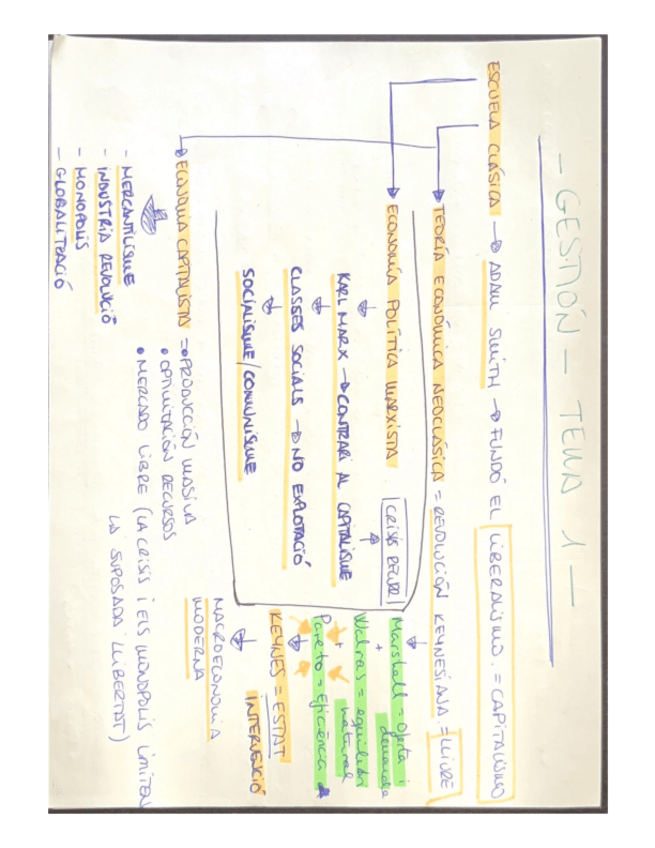 - GESTIÓN - TEMA 1 -
ESCUELA CLÁSICA → ADAM SMITH → FUNDÓ EL LIBERALISMO. = CAPITALISMO
TEORÍA ECONÓMICA NEOCLÁSICA = REVOLUCIÓN KEYNESIANA. = LLIURE
Marshall = Oferta i
demanda
+
Walras = equilibri
natural
+
Pareto = Eficiència
KEYNES = ESTAT
INTERVENCIÓ
MACROECONOMIA
MODERNA
ECONOMÍA POLÍTICA MARXISTA
CRISIS
KARL MARX → CONTRARI AL CAPITALISME
CLASSES SOCIALS → NO EXPLOTACIÓ
SOCIALISME/COMUNISME
ECONOMIA CAPITALISTA = • PRODUCCIÓN MASIVA
• OPTIMITACIÓN RECURSOS
• MERCADO LIBRE (LA CRISIS I ELS MONOPOLIS LIMITEN
LA SUPOSADA LLIBERTAT)
- MERCANTILISME
- INDUSTRIA REVOLUCIÓ
- MONOPOLIS
- GLOBALITZACIÓ